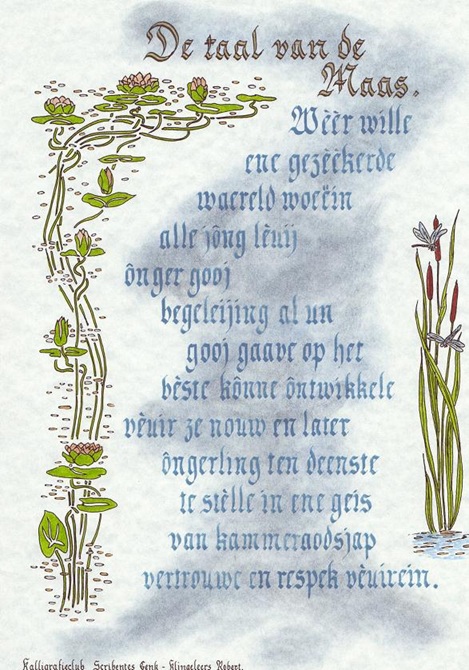 De taal van de
Maas.
Wèèr wille
ene gezèèkerde
waereld woeëin
alle jông lèuij
ônger gooj
begeleijing al un
gooj gaave op het
bèste kônne ôntwikkele
vèuir ze nouw en later
ôngerling ten deenste
te stèlle in ene geis
van kammeraodsjap
vertrouwe en respek vèuirein.
Kalligrafieclub Scribentes Genk - Klingeleers Robert.